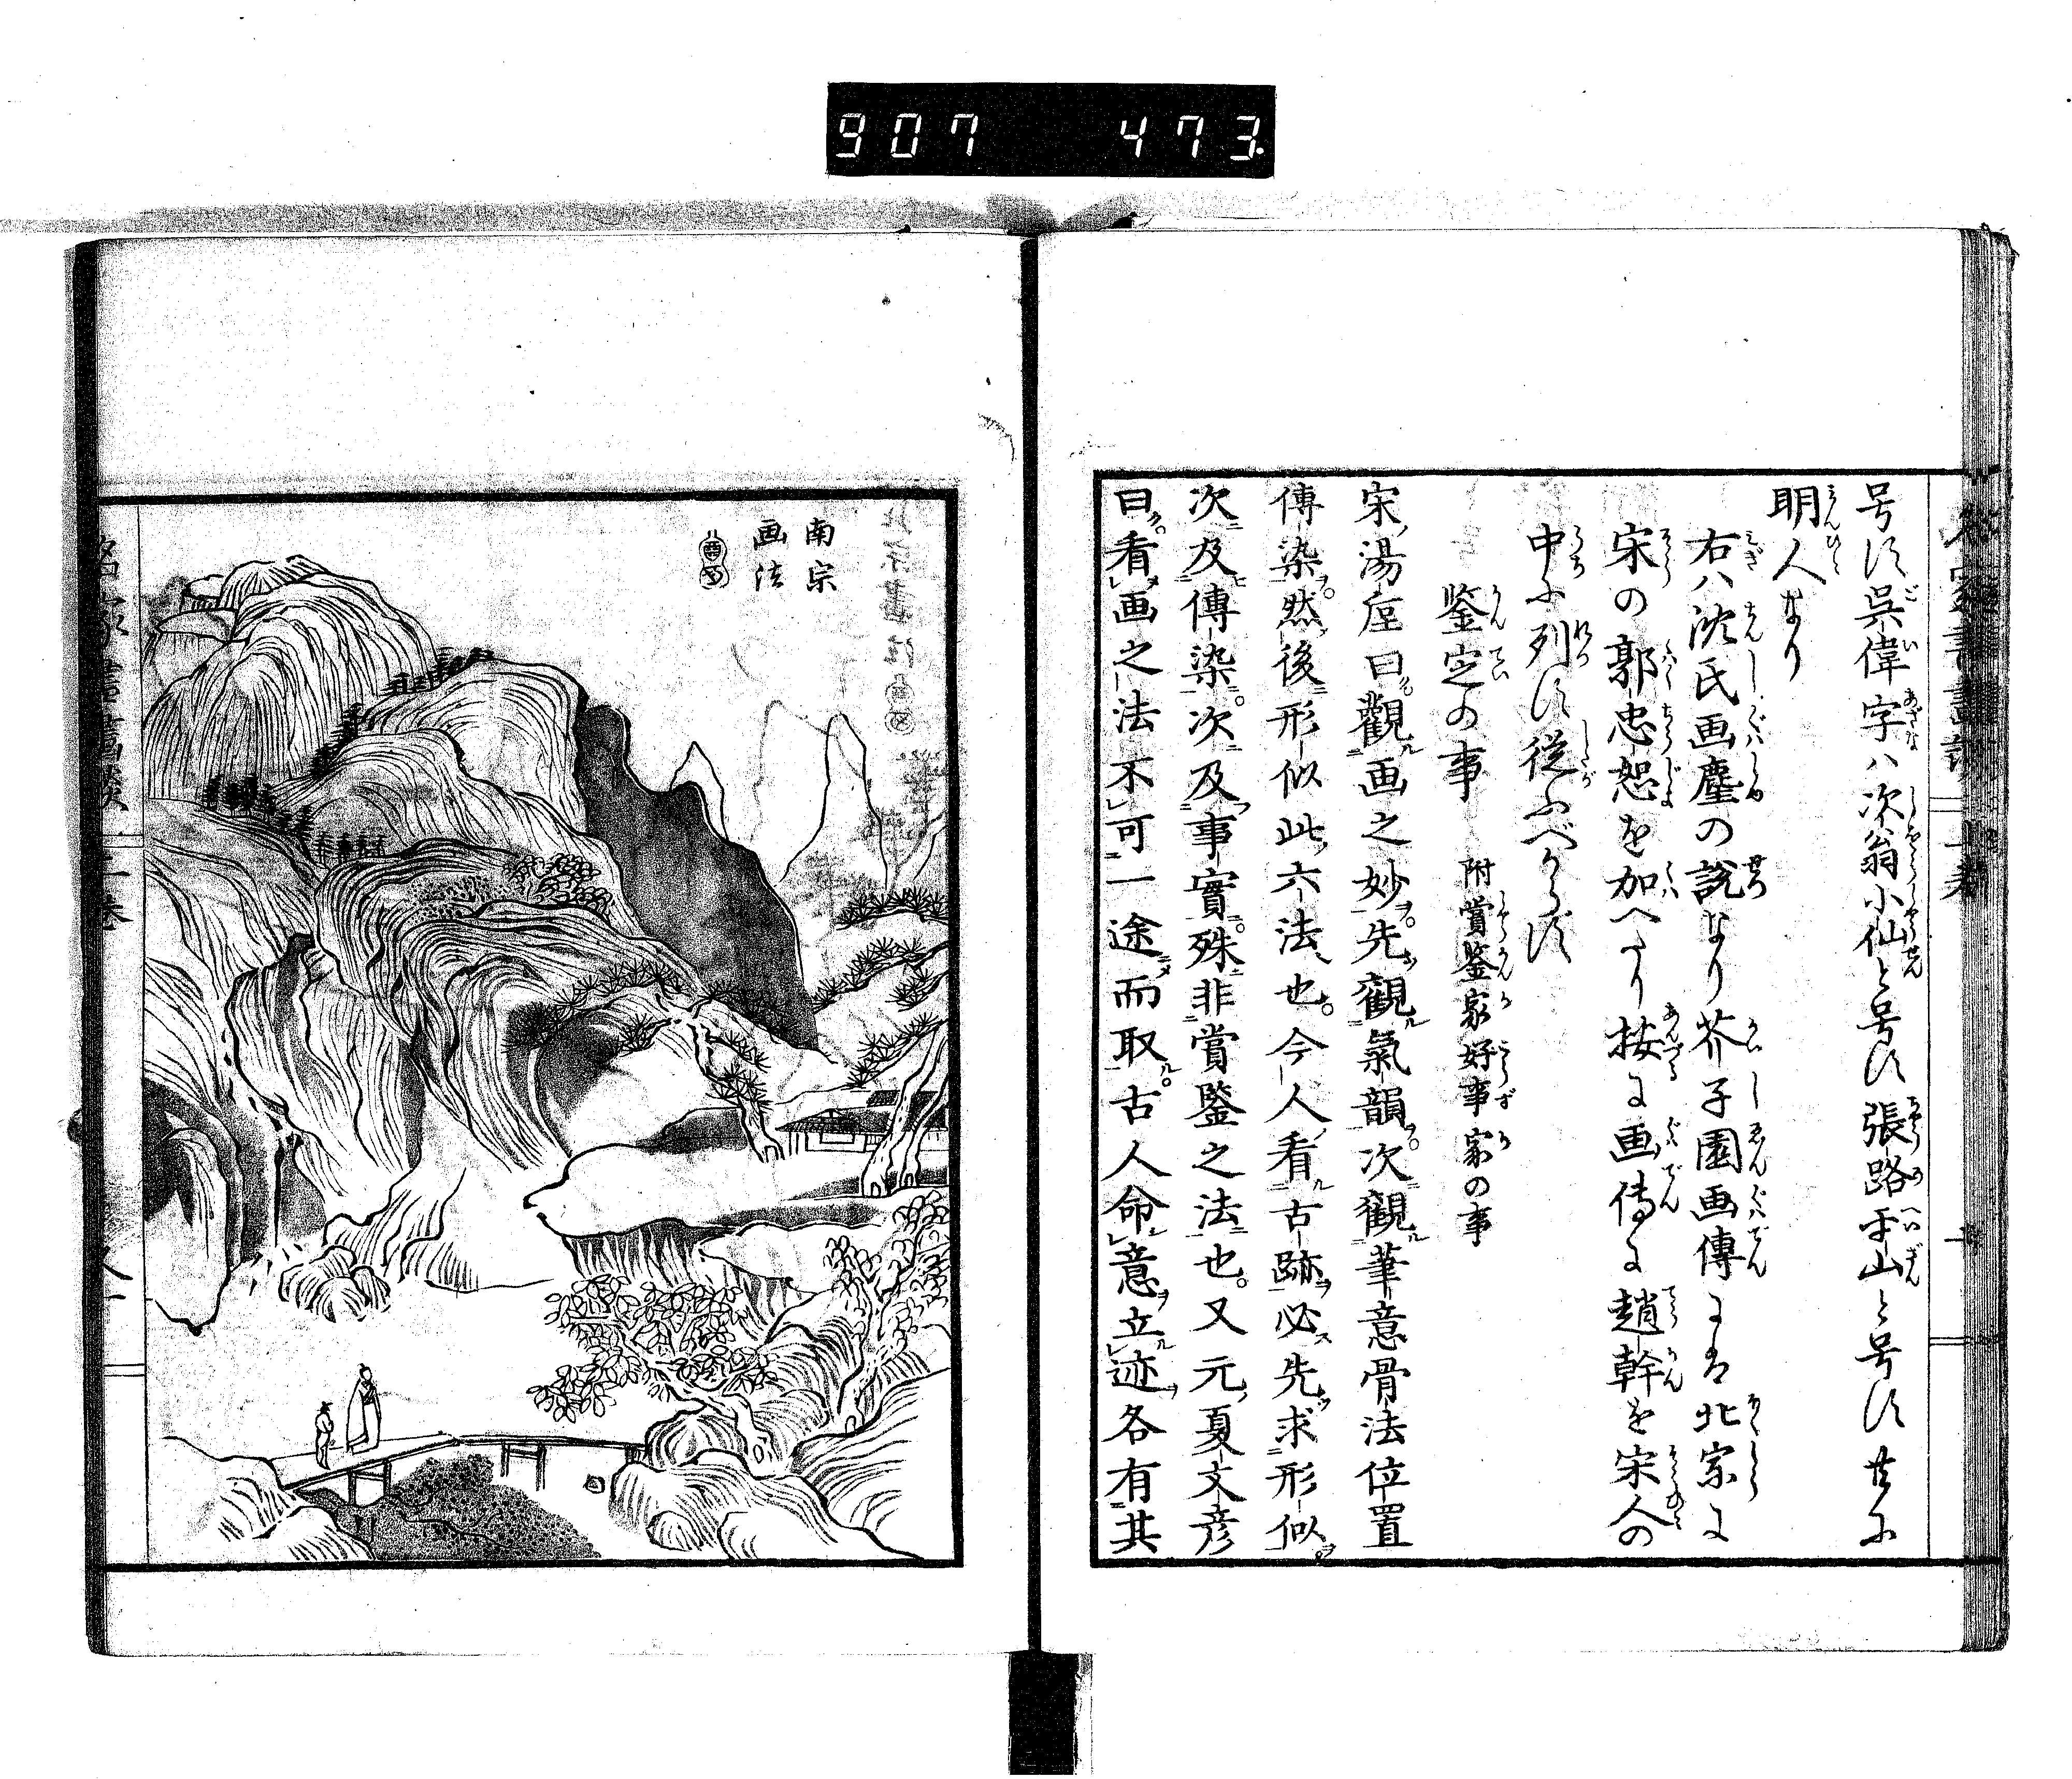 907 473
号す呉偉字ハ次翁小仙と号す張路平山と号す共に
明人なり
右ハ沈氏画麈の説なり芥子園画傳にも北宗に
宋の郭忠恕を加へたり按に画傳に趙幹を宋人の
中に列す従ふべからず
鑒定の事 附賞鑒家好事家の事
宋湯垕曰觀画之妙先觀氣韻次觀筆意骨法位置
傳染然後形似此六法也今人看古跡必先求形似
次及傳染次及事實殊非賞鑒之法也又元夏文彦
曰看画之法不可一途而取古人命意立迹各有其
南宗
画法